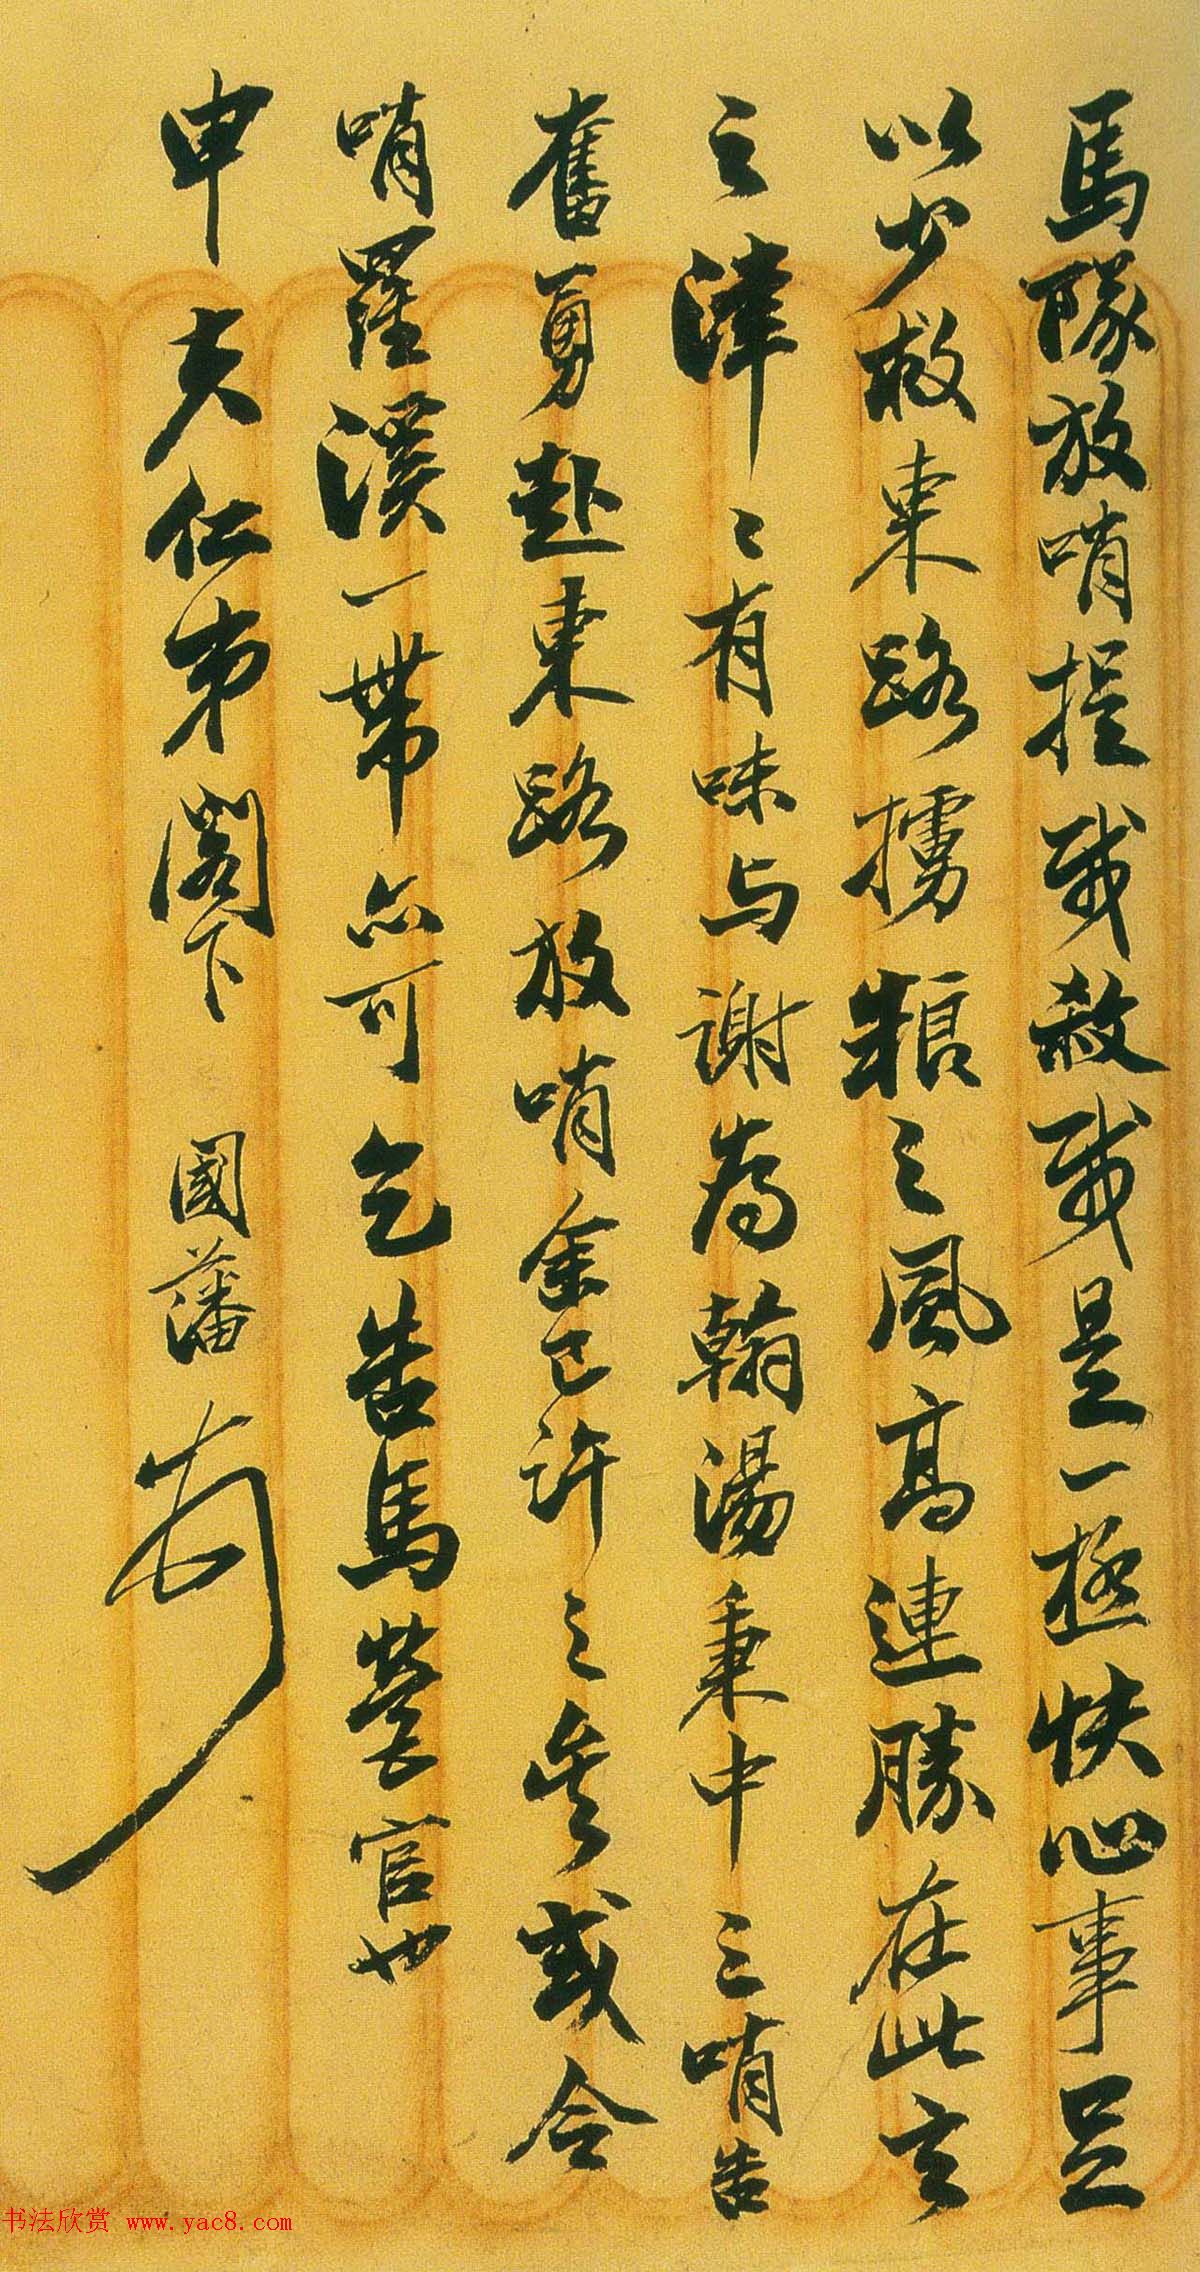 馬隊放哨捉賊殺賊是一極快心事足
以少救東路擄粮之風高連勝在此言
之津〻有味与謝為翰湯秉中三哨告
奮勇赴東路放哨余已許之矣或令
哨羅溪一帶亦可乞告馬營官也
申夫仁弟閣下 國藩
书法欣赏 www.yac8.com